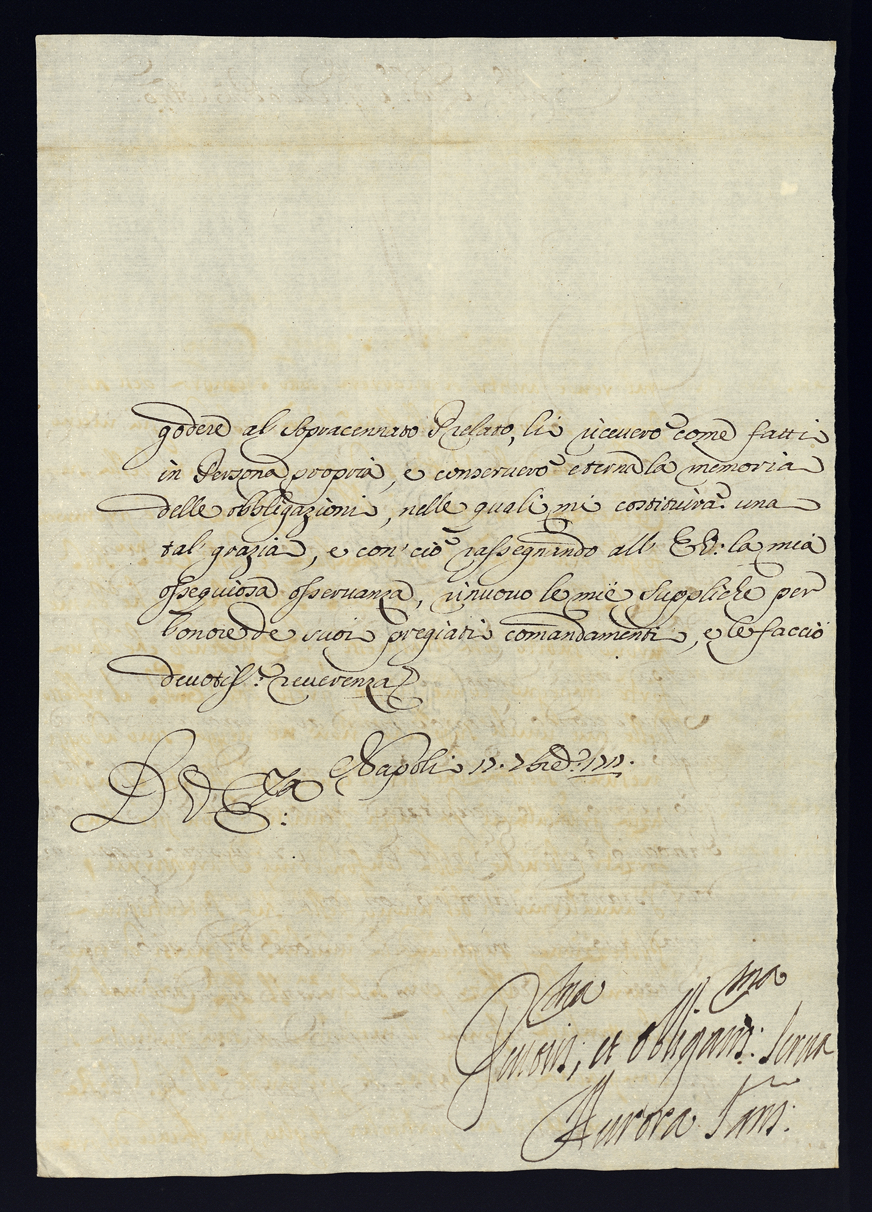 godere al' Sopracennato Prelato, li riceverò come fatti
in Persona propria, e conserverò eterna la memoria
delle obbligazioni, nelle quali mi costituirà una
tal' grazia, e con' ciò rassegnando all' E.V: la mia
ossequiosa osservanza, rinuovo le mie Suppliche per
l'onore de suoi pregiati comandamenti, e le faccio
devotiss.ᵃ reverenza
Napoli 17. 7bre
D V E.za
Devotis:ma, et obligatis:ma Serva
Aurora Sans: